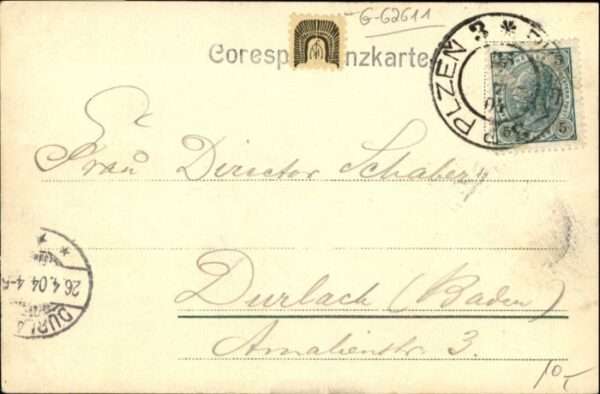 G-62611
Corespondenzkarte
PLZEN 3
5 5
Frau Director Schaber
26.4.04 4-5
DURLA
Durlach (Baden)
Amalienstr. 3.
10,-